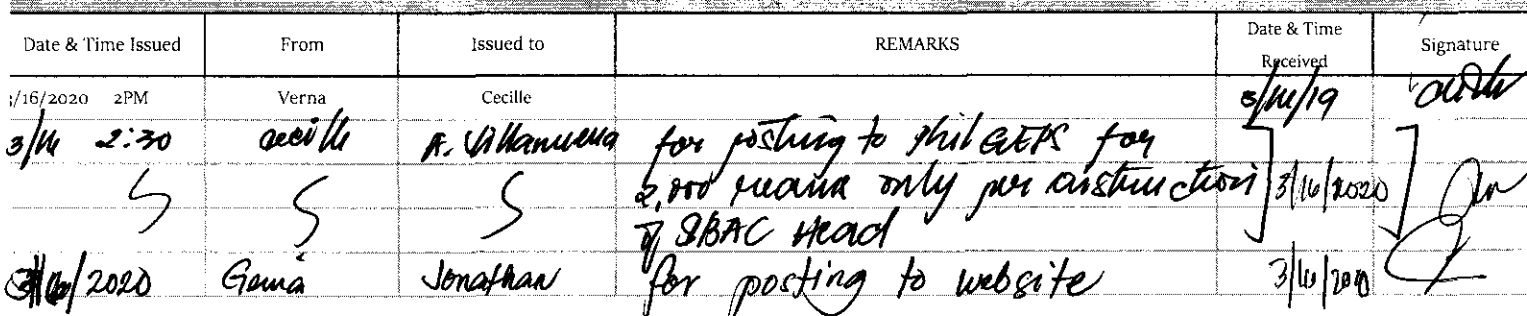 Date & Time Issued From Issued to REMARKS Date & Time Received Signature
/16/2020 2PM Verna Cecille 3/16/19
3/16 2:30 Cecille A. Villanueva for posting to PhilGEPS for
2,000 only per instruction 3/16/2020
of SBAC Head
2020 Gema Jonathan for posting to website 3/16/2020